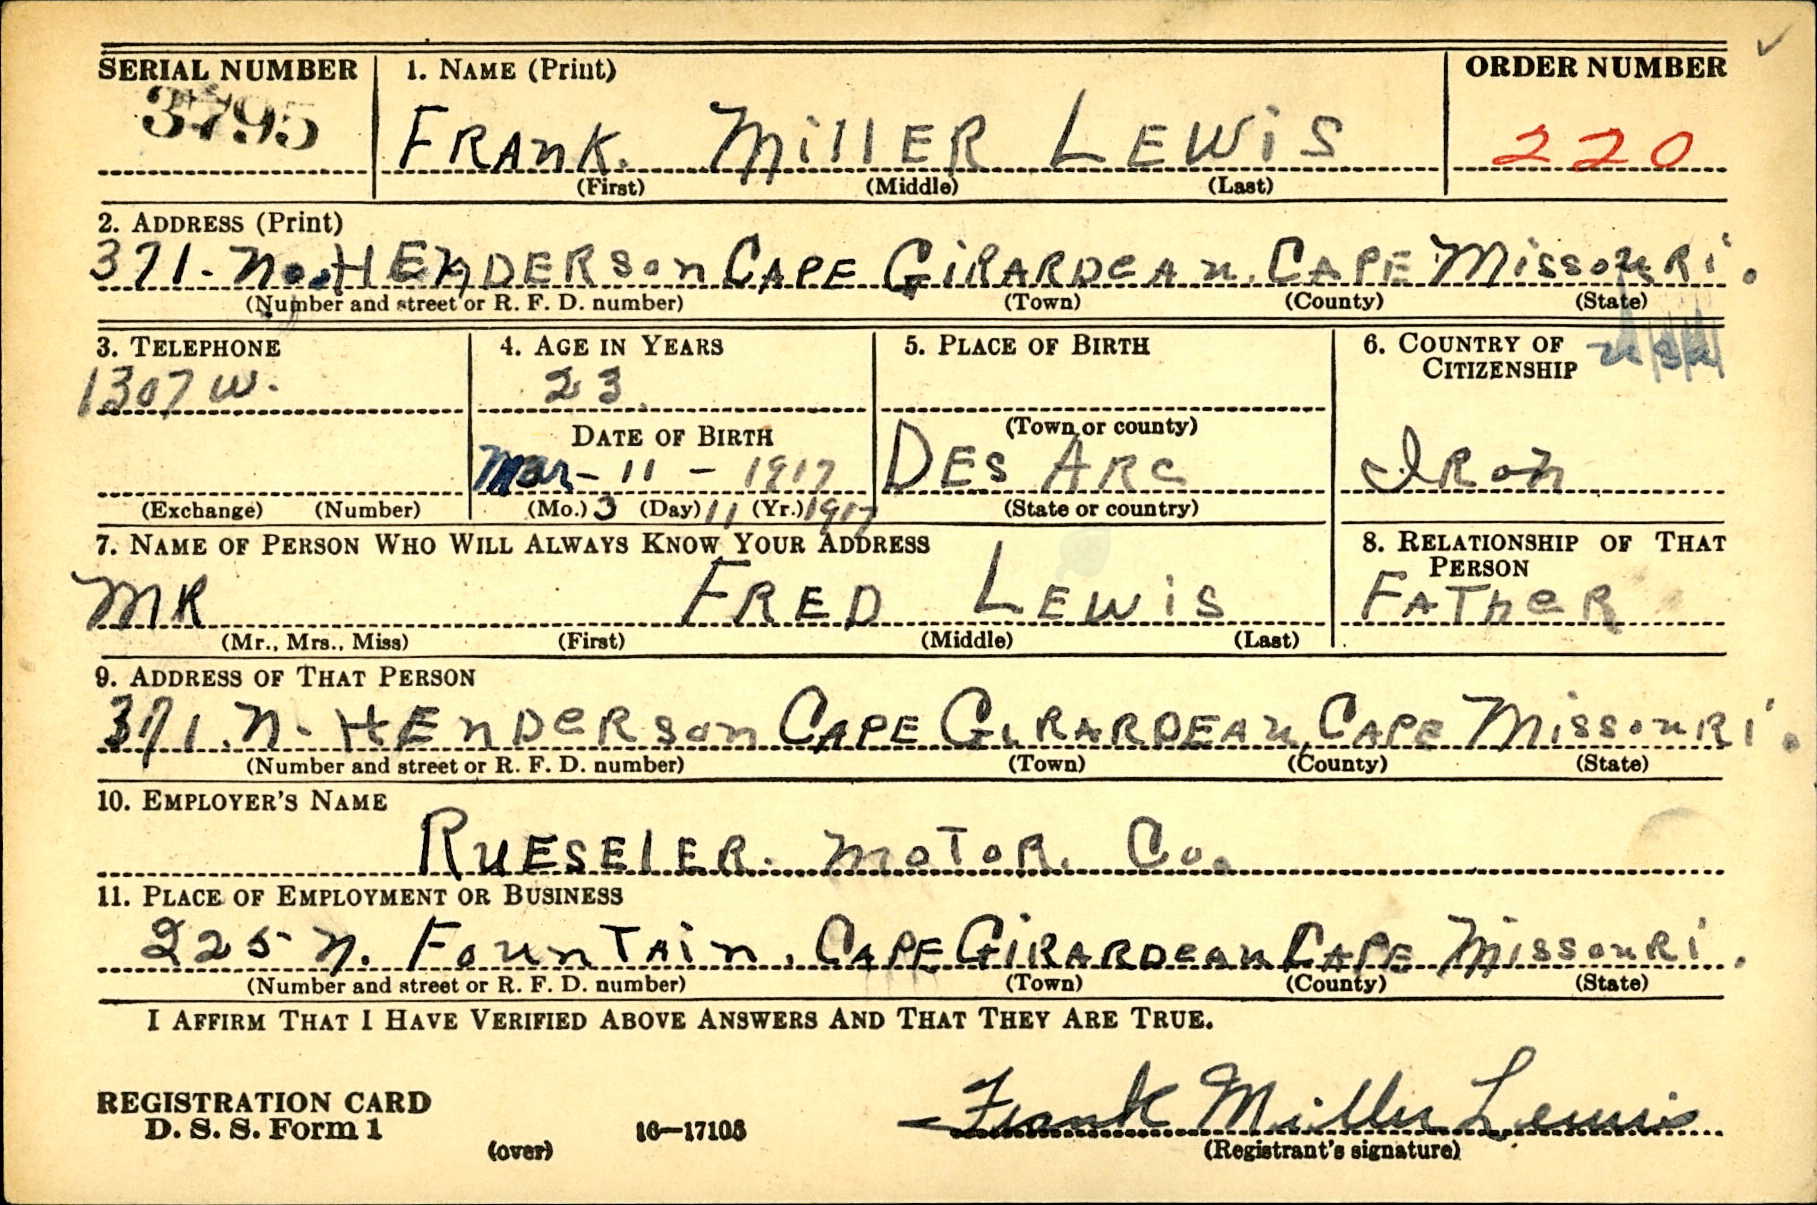 SERIAL NUMBER 1. NAME (Print) ORDER NUMBER
3795 FRANK. MillER LEWiS 220
(First) (Middle) (Last)
2. ADDRESS (Print)
371. No. HENDERSon CAPE GiRARDEAu, CAPE MissouRi.
(Number and street or R. F. D. number) (Town) (County) (State)
3. TELEPHONE 4. AGE IN YEARS 5. PLACE OF BIRTH 6. COUNTRY OF CITIZENSHIP usa
1307 W. 23
DATE OF BIRTH (Town or county)
Mar - 11 - 1917 DES ARC IRon
(Exchange) (Number) (Mo.) 3 (Day) 11 (Yr.) 1917 (State or country)
7. NAME OF PERSON WHO WILL ALWAYS KNOW YOUR ADDRESS 8. RELATIONSHIP OF THAT PERSON
MR FRED LEWiS FATheR
(Mr., Mrs., Miss) (First) (Middle) (Last)
9. ADDRESS OF THAT PERSON
371. N. HEnDeRson CAPE GiRARDEAu, CAPE MissouRi.
(Number and street or R. F. D. number) (Town) (County) (State)
10. EMPLOYER'S NAME
RuESElER. MoToR. Co.
11. PLACE OF EMPLOYMENT OR BUSINESS
225 N. FounTAin, CAPE GiRARDeau CAPE MissouRi.
(Number and street or R. F. D. number) (Town) (County) (State)
I AFFIRM THAT I HAVE VERIFIED ABOVE ANSWERS AND THAT THEY ARE TRUE.
REGISTRATION CARD
D. S. S. Form 1 Frank Miller Lewis
(over) 16—17105 (Registrant's signature)